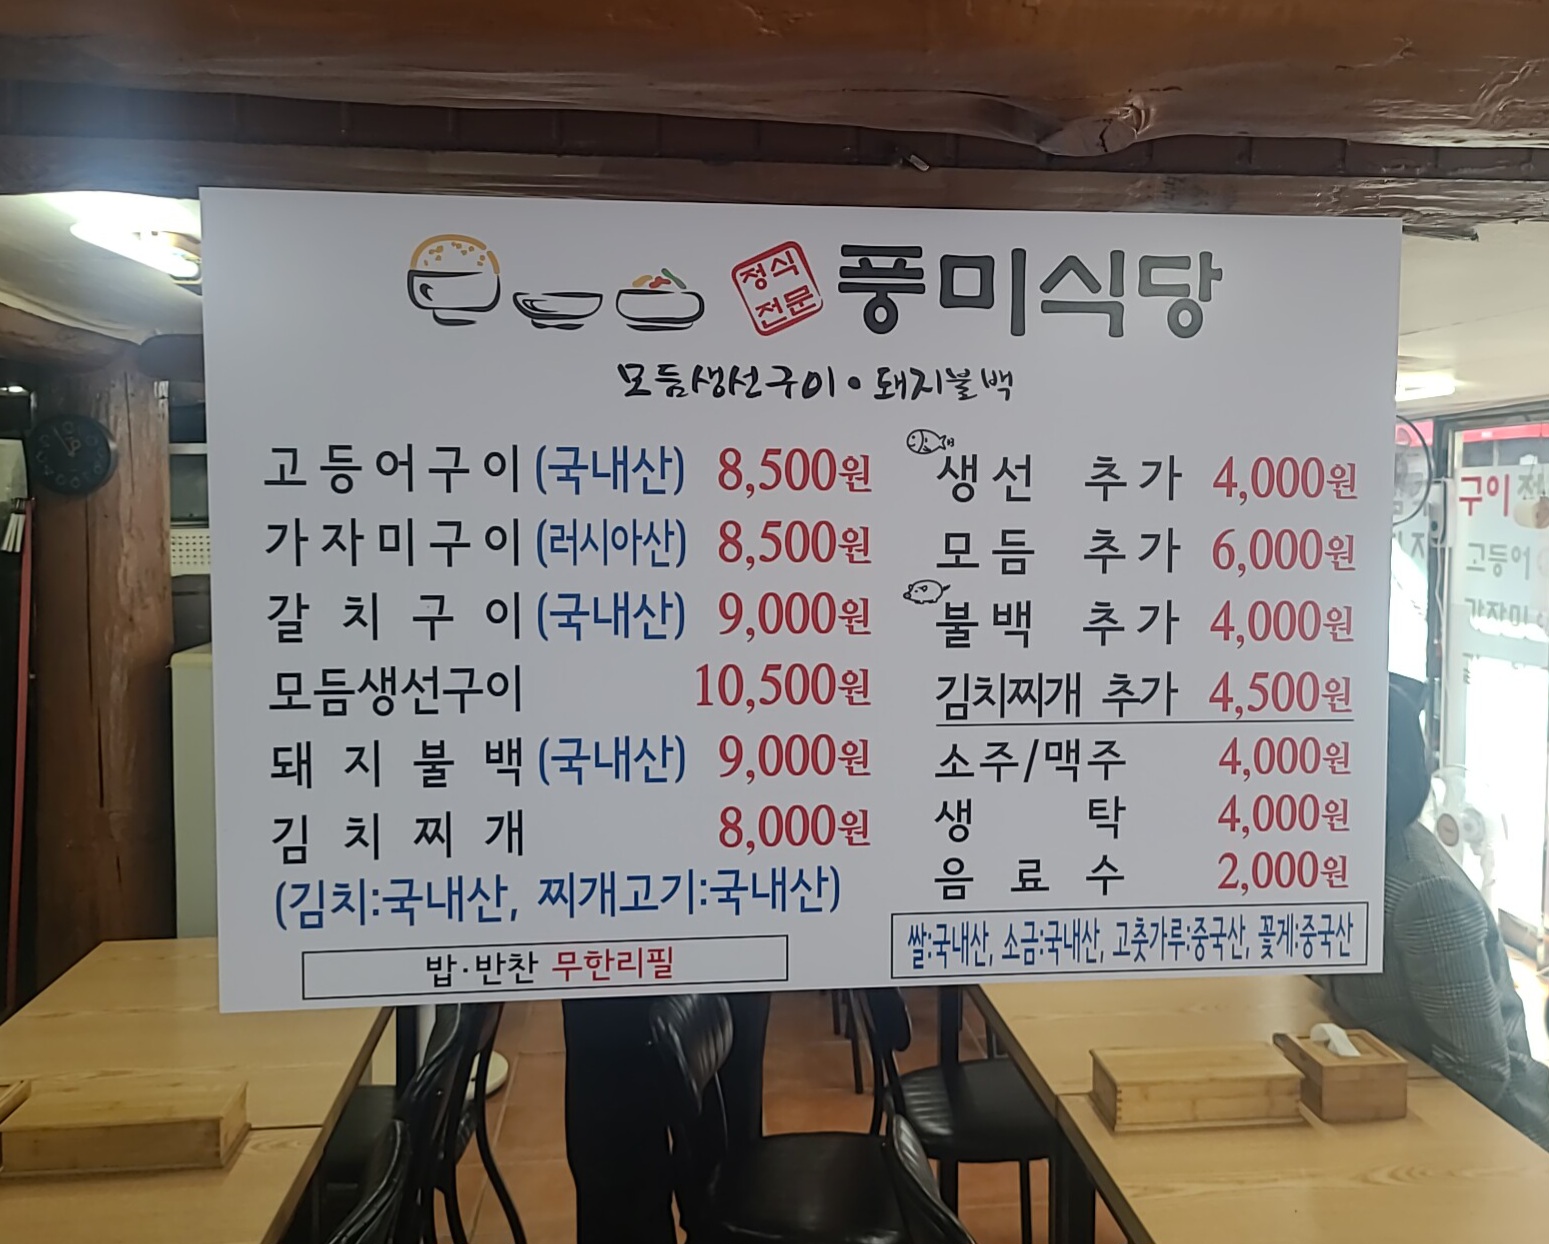 정식
전문
풍미식당
모듬생선구이 • 돼지불백
고등어구이(국내산) 8,500원
가자미구이(러시아산) 8,500원
갈치구이(국내산) 9,000원
모듬생선구이 10,500원
돼지불백(국내산) 9,000원
김치찌개 8,000원
(김치:국내산, 찌개고기:국내산)
밥·반찬 무한리필
생선 추가 4,000원
모듬 추가 6,000원
불백 추가 4,000원
김치찌개 추가 4,500원
소주/맥주 4,000원
생탁 4,000원
음료수 2,000원
쌀:국내산, 소금:국내산, 고춧가루:중국산, 꽃게:중국산
구이
고등어
가자미